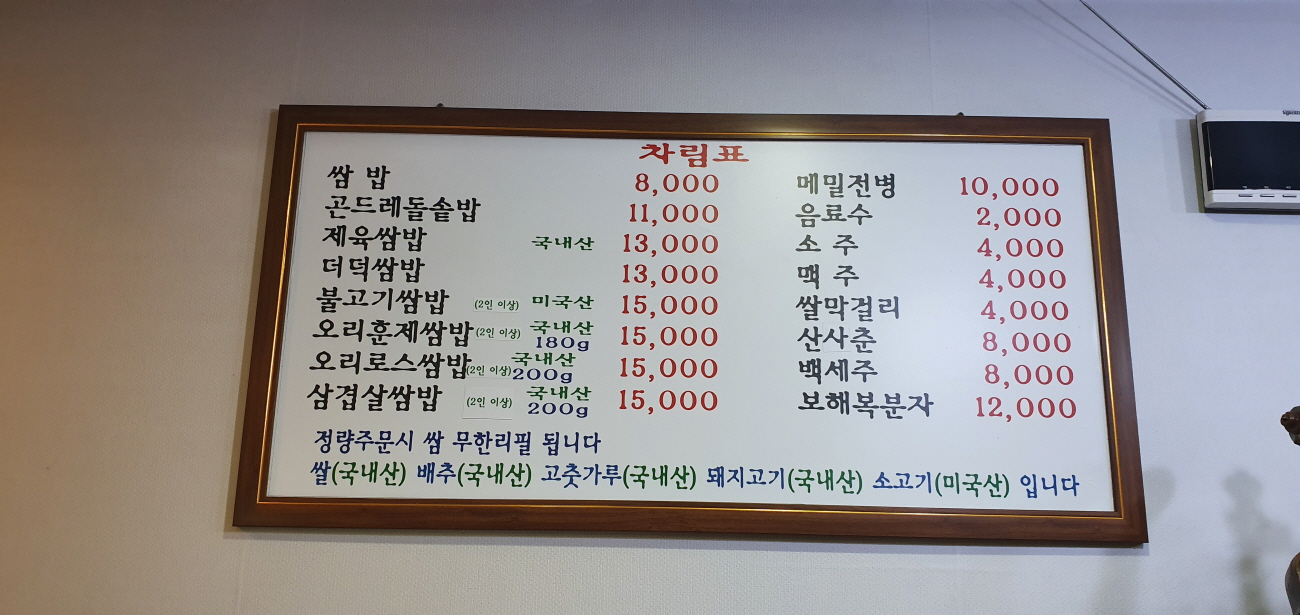 차림표
쌈 밥 8,000
곤드레돌솥밥 11,000
제육쌈밥 국내산 13,000
더덕쌈밥 13,000
불고기쌈밥 (2인 이상) 미국산 15,000
오리훈제쌈밥 (2인 이상) 국내산 180g 15,000
오리로스쌈밥 (2인 이상) 국내산 200g 15,000
삼겹살쌈밥 (2인 이상) 국내산 200g 15,000
메밀전병 10,000
음료수 2,000
소 주 4,000
맥 주 4,000
쌀막걸리 4,000
산사춘 8,000
백세주 8,000
보해복분자 12,000
정량주문시 쌈 무한리필 됩니다
쌀(국내산) 배추(국내산) 고춧가루(국내산) 돼지고기(국내산) 소고기(미국산) 입니다